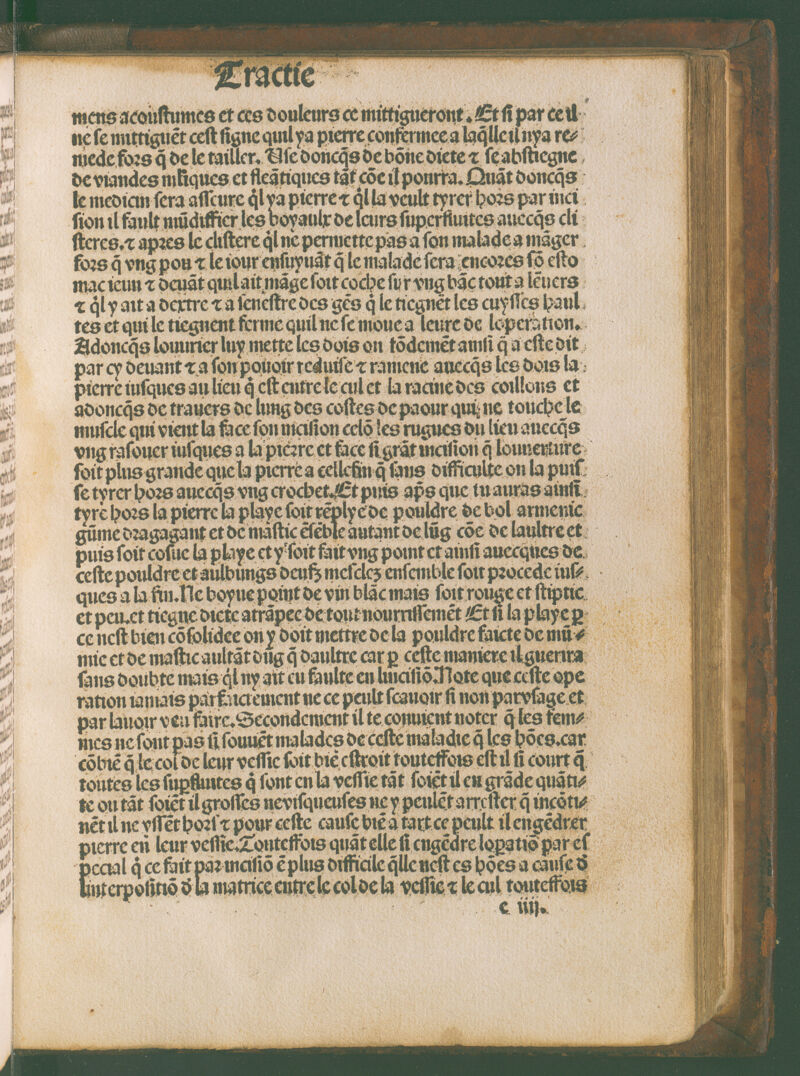 Tractie
mens acouſtumes et ces douleurs ce mittigueront. Et ſi par ce il
ne ſe mittiguẽt ceſt ſigne quil ya pierre confermee a laq̃lle il nya re⸗
mede fors q̃ de le tailler. Uſe doncq̃s de bõne diete ⁊ ſe abſtiegne
de viandes et fleãtiques tãt cõe il pourra. Quãt doncq̃s
le medicin ſera aſſeure q̃l ya pierre ⁊ q̃l la veult tyrer hors par inci
ſion il fault mũdiffier les boyaulx de leurs ſuperfluites auecq̃s cli
ſteres.⁊ apres le cliſtere q̃l ne permette pas a ſon malade a mãger
fors q̃ vng pou ⁊ le iour enſuyuãt q̃ le malade ſera encores ſõ eſto
mac ieun ⁊ deuãt quil ait mãge ſoit coche ſur vng bãc tout a lẽuers
⁊ q̃l y ait a dextre ⁊ a ſeneſtre des gẽs q̃ le tiegnẽt les cuyſſes haul
tes et qui le tiegnent ferme quil ne ſe moue a leure de loperation.
Adoncq̃s louurier luy mette les dois on fõdemẽt ainſi q̃ a eſte dit
par cy deuant ⁊ a ſon pouoir reduiſe ⁊ ramene auecq̃s les dois la
pierre iuſques au lieu q̃ eſt entre le cul et la racine des coillons et
adoncq̃s de trauers de lung des coſtes de paour qui ne touche le
muſcle qui vient la face ſon inciſion celõ les rugues du lieu auecq̃s
vng raſouer iuſques a la pierre et face ſi grãt inciſion q̃ louuerture
ſoit plus grande que la pierre a celle fin q̃ ſans difficulte on la puiſ
ſe tyrer hors auecq̃s vng crochet. Et puis ap̃s que tu auras ainſi
tyre hors la pierre la playe ſoit rẽplye de pouldre de bol armenic
gũme dragagant et de maſtic ẽſẽble autant de lũg cõe de laultre et
puis ſoit coſue la playe et y ſoit fait vng point et ainſi auecques de
ceſte pouldre et aulbungs deufz meſclez enſemble ſoit procede iuſ⸗
ques a la fin. Ne boyue point de vin blãc mais ſoit rouge et ſtiptic
et peu.et tiegne diete atrãpee de tout nourriſſemẽt Et ſi la playe p̱
ce neſt bien cõſolidee on y doit mettre de la pouldre faicte de mũ⸗
mie et de maſtic aultãt dũg q̃ daultre car p̱ ceſte maniere il guerira
ſans doubte mais q̃l ny ait eu faulte en linciſiõ. Note que ceſte ope
ration iamais parfaictement ne ce peult ſcauoir ſi non par vſage et
par lauoir veu faire. Secondement il te conuient noter q̃ les fem⸗
mes ne ſont pas ſi ſouuẽt malades de ceſte maladie q̃ les hões.car
cõbiẽ q̃ le col de leur veſſie ſoit biẽ eſtroit touteffois eſt il ſi court q̃
toutes les ſup̱fluites q̃ ſont en la veſſie tãt ſoiẽt il en grãde quãti⸗
te ou tãt ſoiẽt il groſſes ne viſqueuſes ne y peulẽt arreſter q̃ incõti⸗
nẽt il ne yſſẽt horſ ⁊ pour ceſte cauſe biẽ a tart ce peult il engẽdrer
pierre en leur veſſie. Touteffois quãt elle ſi engẽdre lopatiõ par eſ
pecial q̃ ce fait par inciſiõ ẽ plus difficile q̃lle neſt es hões a cauſe ḋ
linterpoſitiõ ḋ la matrice entre le col de la veſſie ⁊ le cul touteffois
c iiij.